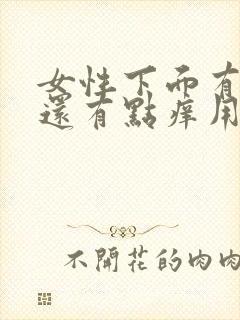 女性下面有
還有點痒用
不開花的肉肉